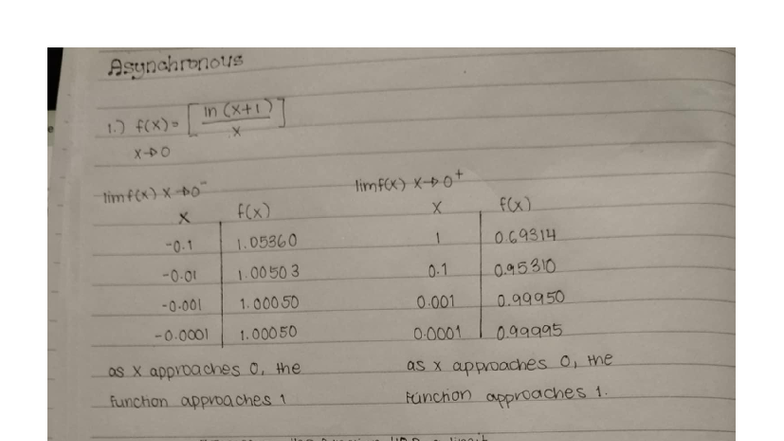 Asynchronous
1.) f(x) = [ln (x+1) / x]
x→0
limf(x) x→0⁻ limf(x) x→0⁺
x f(x) x f(x)
-0.1 1.05360 1 0.69314
-0.01 1.00503 0.1 0.95310
-0.001 1.00050 0.001 0.99950
-0.0001 1.00050 0.0001 0.99995
as x approaches 0, the as x approaches 0, the
function approaches 1 function approaches 1.